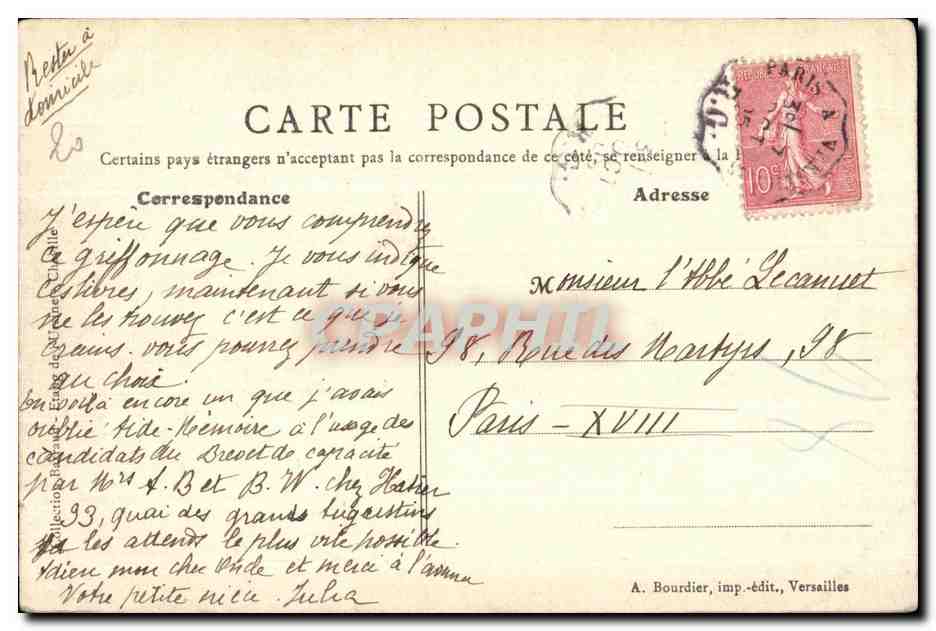 Rester à
domicile
20
CARTE POSTALE
Certains pays étrangers n'acceptent pas la correspondance de ce côté, se renseigner à la
Correspondance
Adresse
PARIS A
10c
J'espère que vous comprendrez
ce griffonnage. Je vous indique
ces livres, maintenant si vous
ne les trouvez c'est ce que je
crains. vous pourrez prendre
au choix.
En voilà encore un que j'avais
oublié: Aide-Mémoire à l'usage des
candidats du Brevet de capacité
par Mrs A. B et B. W. chez Hatier
33, quai des grands Augustins
les attends le plus vite possible.
Adieu mon cher Oncle et merci à l'avance
Votre petite nièce Julia
Monsieur l'Abbé Lecannet
98, Rue des Martyrs, 98
Paris - XVIII
A. Bourdier, imp.-édit., Versailles
CPAPHIL